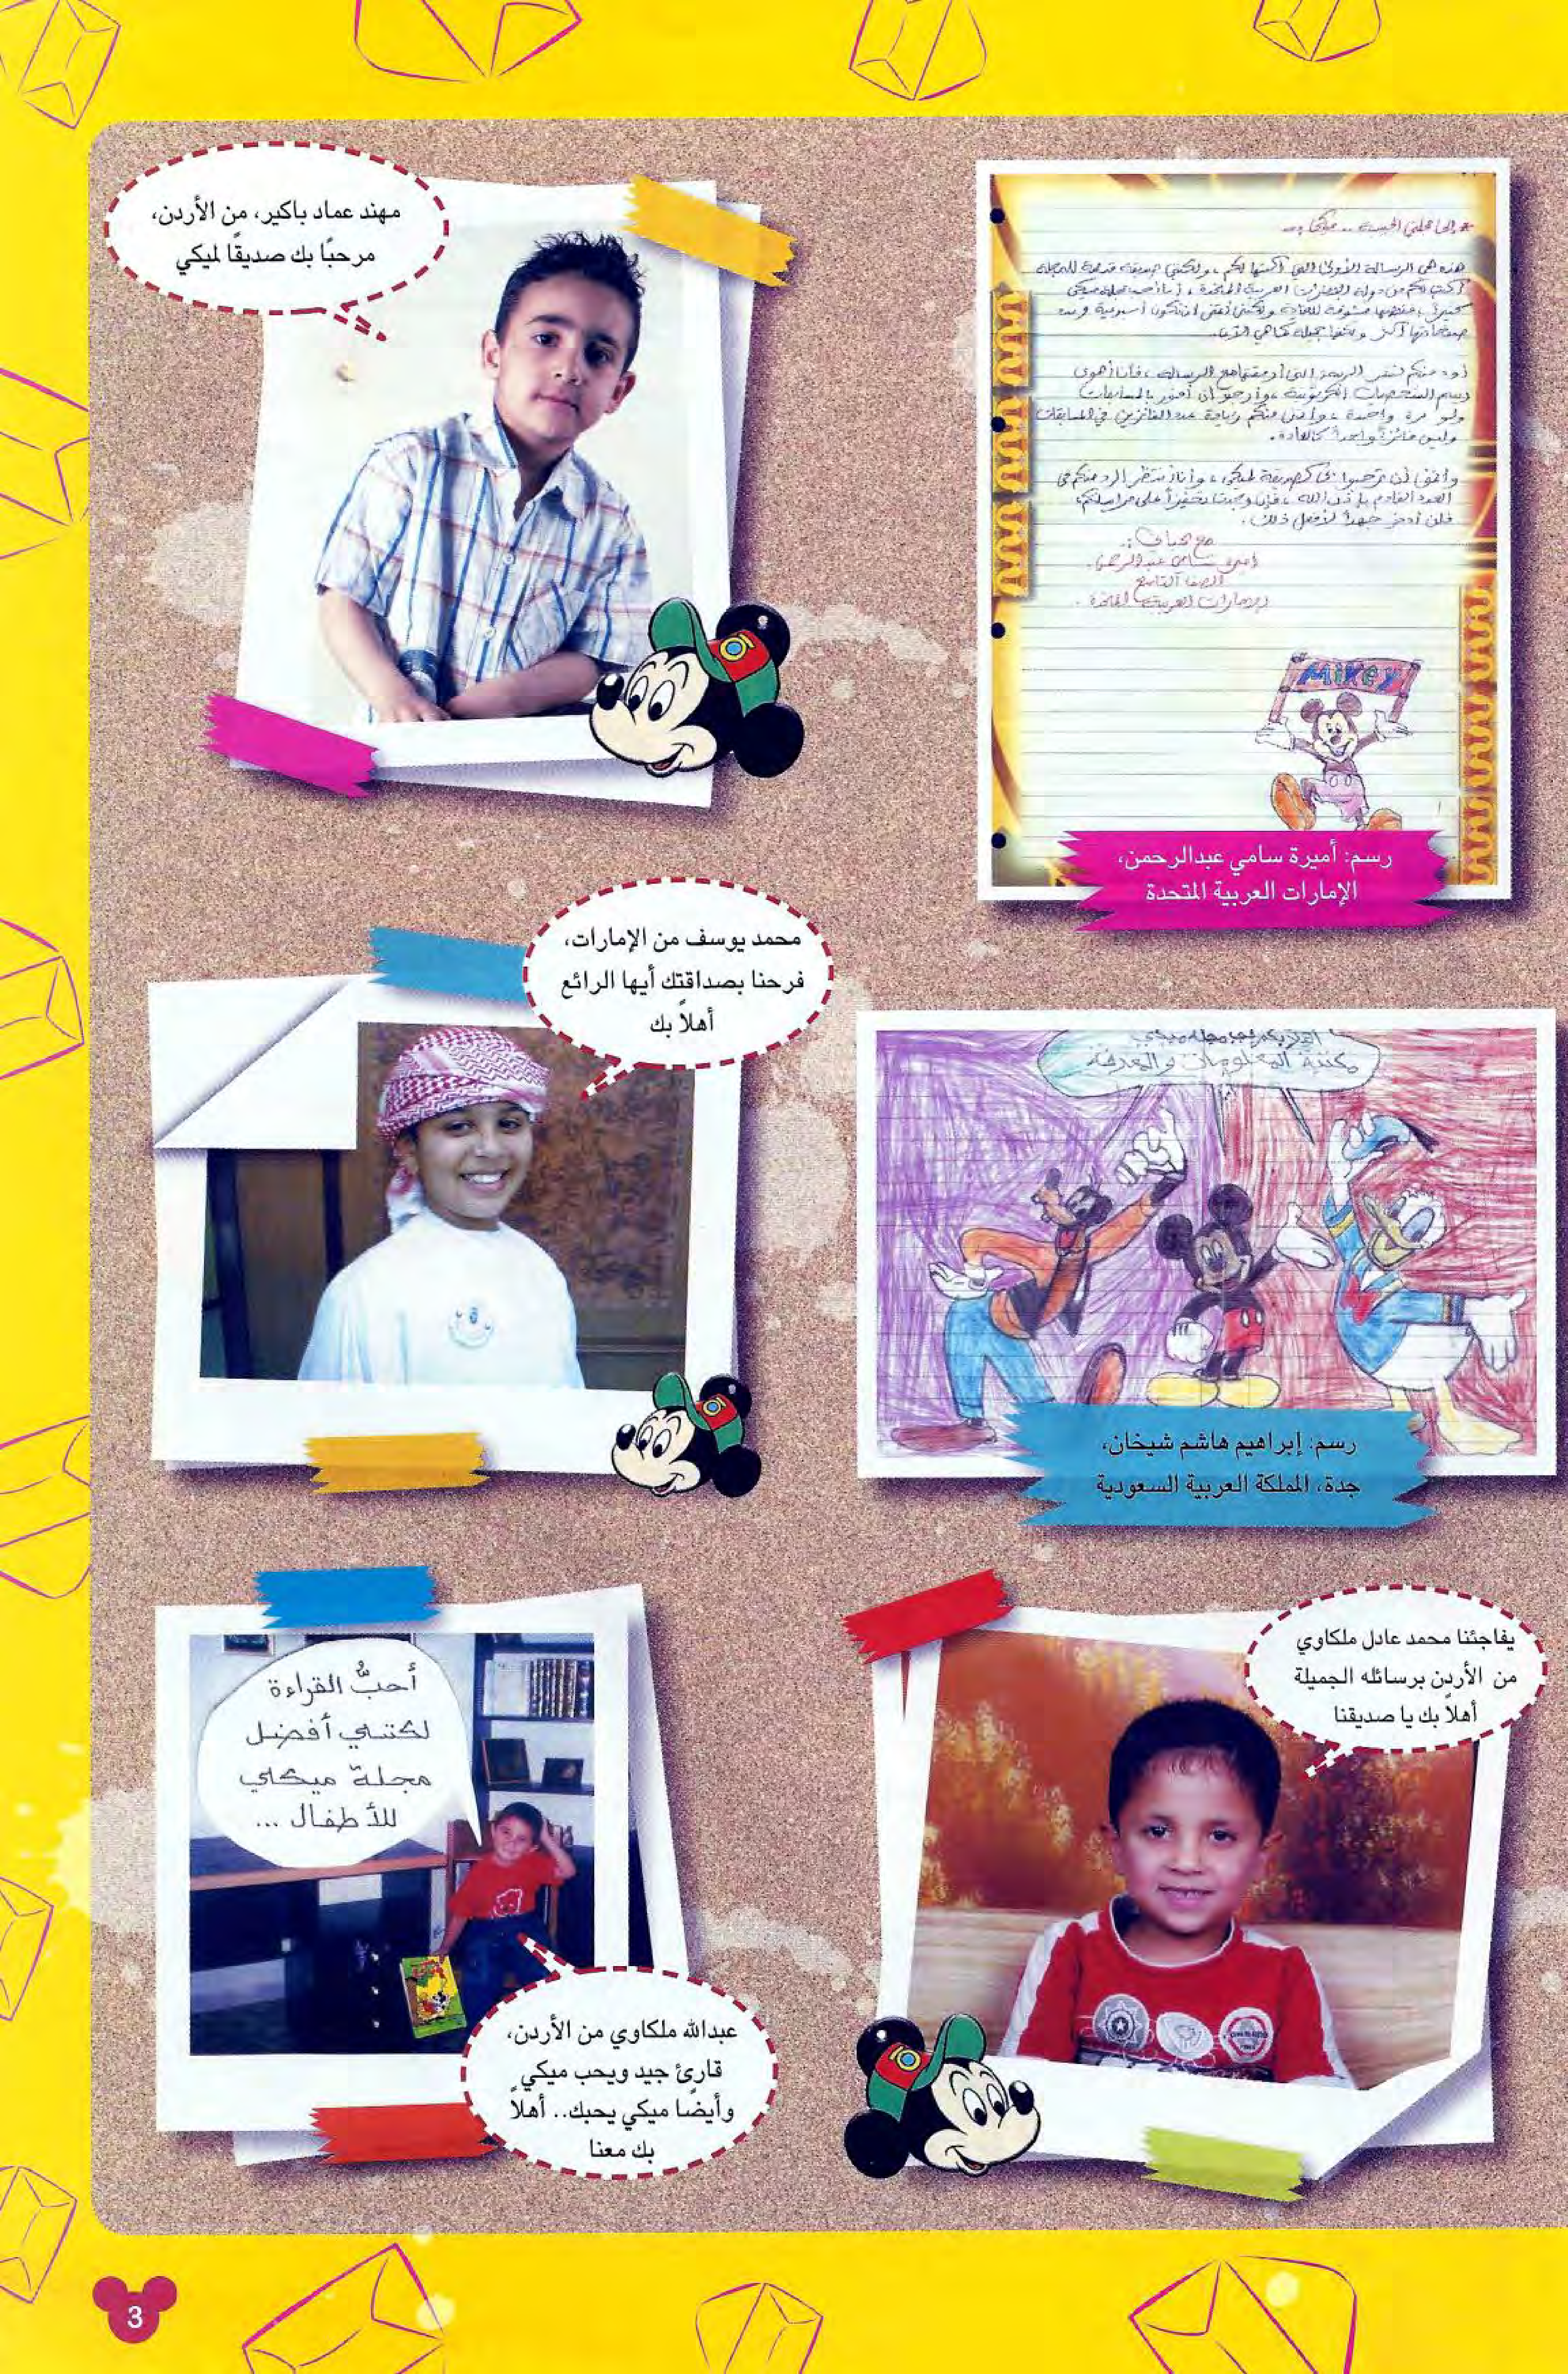 مهند عماد باكير، من الأردن،
مرحبًا بك صديقًا لميكي
هذه هي الرسالة الأولى التي أكتبها لكم، ولكنني صديقة قديمة للمجلة
أكتب لكم من دولة الإمارات العربية المتحدة، أنا أحب مجلة ميكي
رسم الشخصيات الكرتونية، وأرجو أن أفوز بالمسابقات
ولو مرة واحدة، وأتمنى منكم زيادة عدد الفائزين في المسابقات
وليس فائزاً واحداً كالعادة.
وأتمنى أن ترحبوا بي كصديقة لميكي، وأنا أنتظر الرد منكم في
العدد القادم بإذن الله، فإن وجدت تحفيزاً على مراسلتكم
فلن أدخر جهداً لأفعل ذلك.
أميرة سامي عبدالرحمن.
الصف التاسع
الإمارات العربية المتحدة.
MiKey
رسم: أميرة سامي عبدالرحمن،
الإمارات العربية المتحدة
محمد يوسف من الإمارات،
فرحنا بصداقتك أيها الرائع
أهلاً بك
المعلومات والمعرفة
رسم: إبراهيم هاشم شيخان،
جدة، المملكة العربية السعودية
يفاجئنا محمد عادل ملكاوي
من الأردن برسائله الجميلة
أهلاً بك يا صديقنا
أحبُّ القراءة
لكنني أفضل
مجلة ميكي
للأطفال ...
عبدالله ملكاوي من الأردن،
قارئ جيد ويحب ميكي
وأيضًا ميكي يحبك.. أهلاً
بك معنا
3